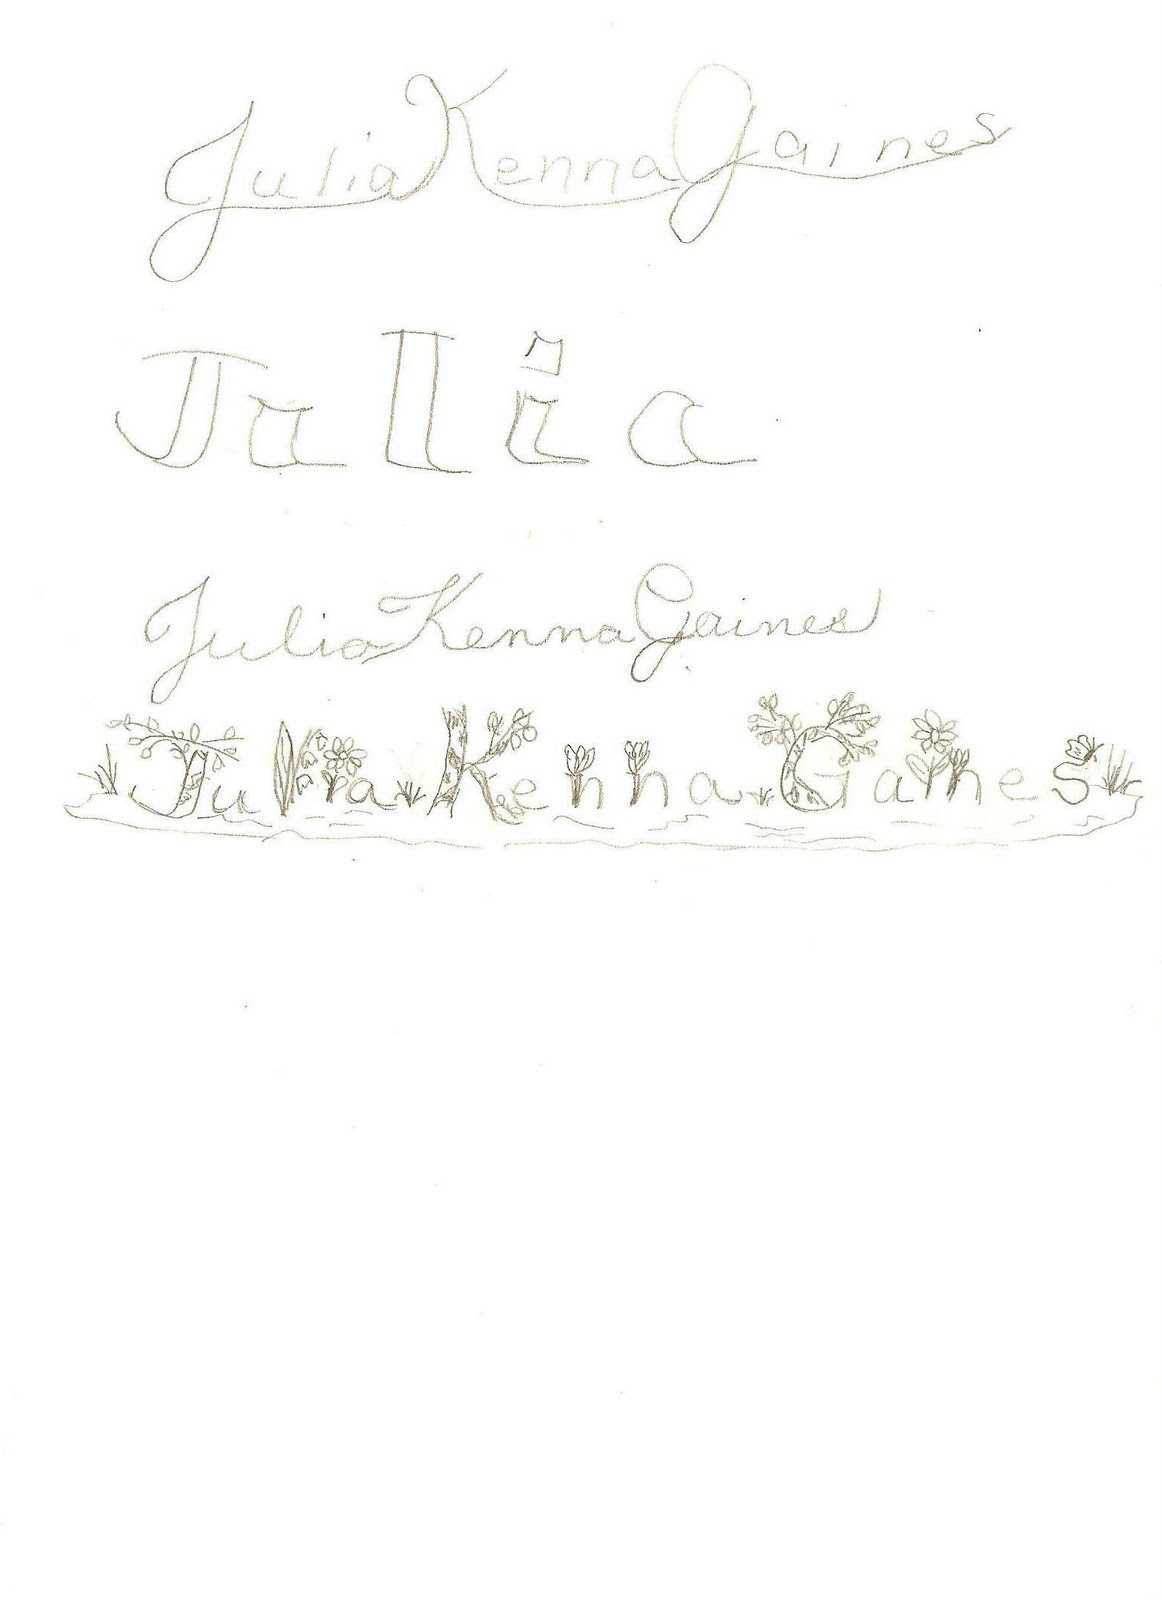 Julia Kenna Gaines
Julia
Julia Kenna Gaines
Julia Kenna Gaines